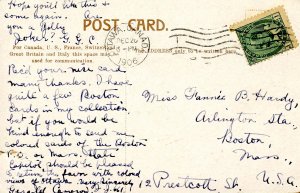 Hope you'll like this &
some again. Are
you a Jolly
Joker? G.E.C.
POST CARD.
For Canada, U. S., France, Switzerland,
Great Britain and Italy this space may
be used for communication.
THE ADDRESS only to be written here.
OTTAWA, CANADA
DEC 20
1906
Rec'd your nice card
many thanks. I have
quite a few Boston
cards in my collection
but if you would be
kind enough to send me
colored cards of the Boston
P.O. or Mass. State
Capitol should be pleased
& return the favor with colored
views of Ottawa. Very Sincerely
Gerald
12 Prescott St.
Miss Fannie B. Hardy,
Arlington Sta.
Boston,
Mass.,
U.S.